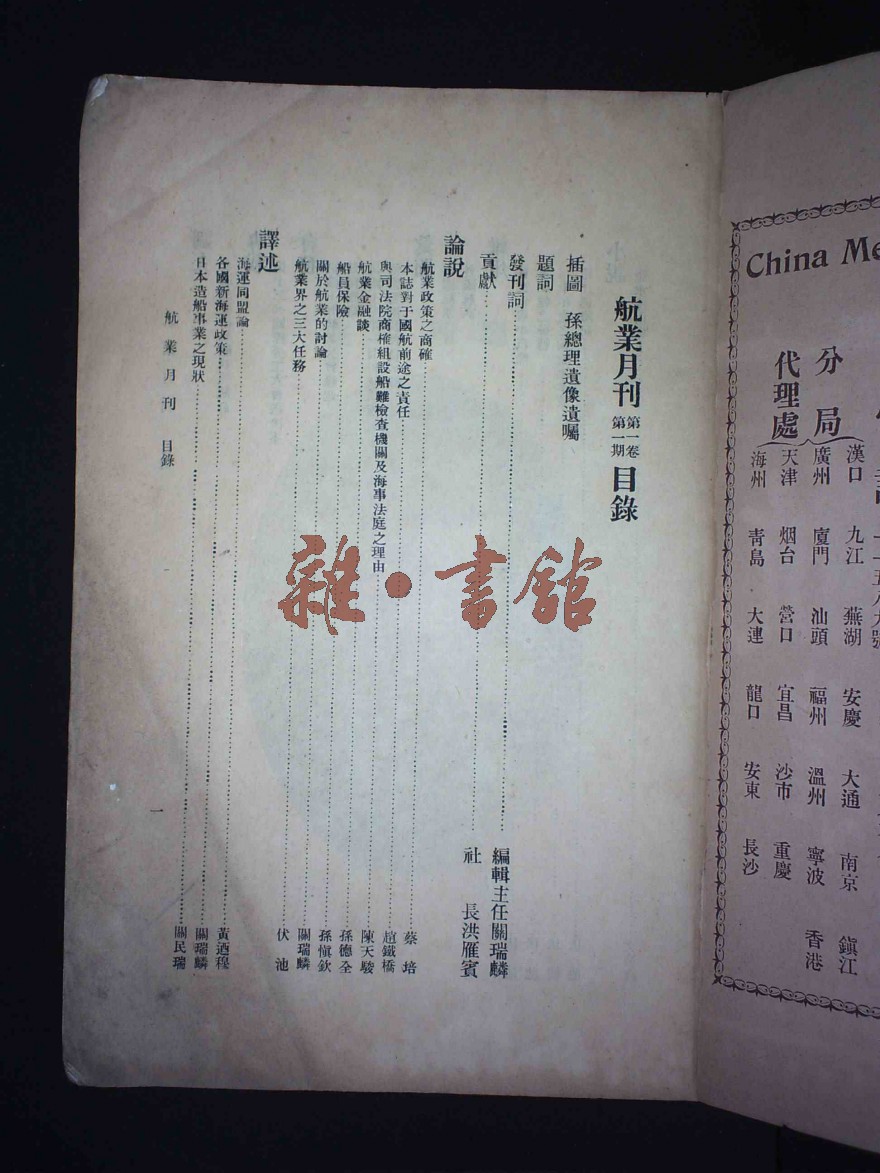 China Me
漢口 九江 蕪湖 安慶 大通 南京 鎮江
分局
廣州 廈門 汕頭 福州 溫州 寧波 香港
代理處
天津 烟台 營口 宜昌 沙市 重慶
海州 青島 大連 龍口 安東 長沙
航業月刊 第一卷 第一期 目錄
插圖 孫總理遺像遺囑
題詞
發刊詞 編輯主任關瑞麟
貢獻 社長洪雁賓
論說
航業政策之商確 蔡培
本誌對于國航前途之責任 趙鐵橋
與司法院商榷組設船難檢查機關及海事法庭之理由 陳天駿
航業金融談 孫德全
船員保險 孫慎欽
關於航業的討論 關瑞麟
航業界之三大任務 伏池
譯述
海運同盟論 黃迺穆
各國新海運政策 關瑞麟
日本造船事業之現狀 關民瑞
航業月刊 目錄
一
雜·書館